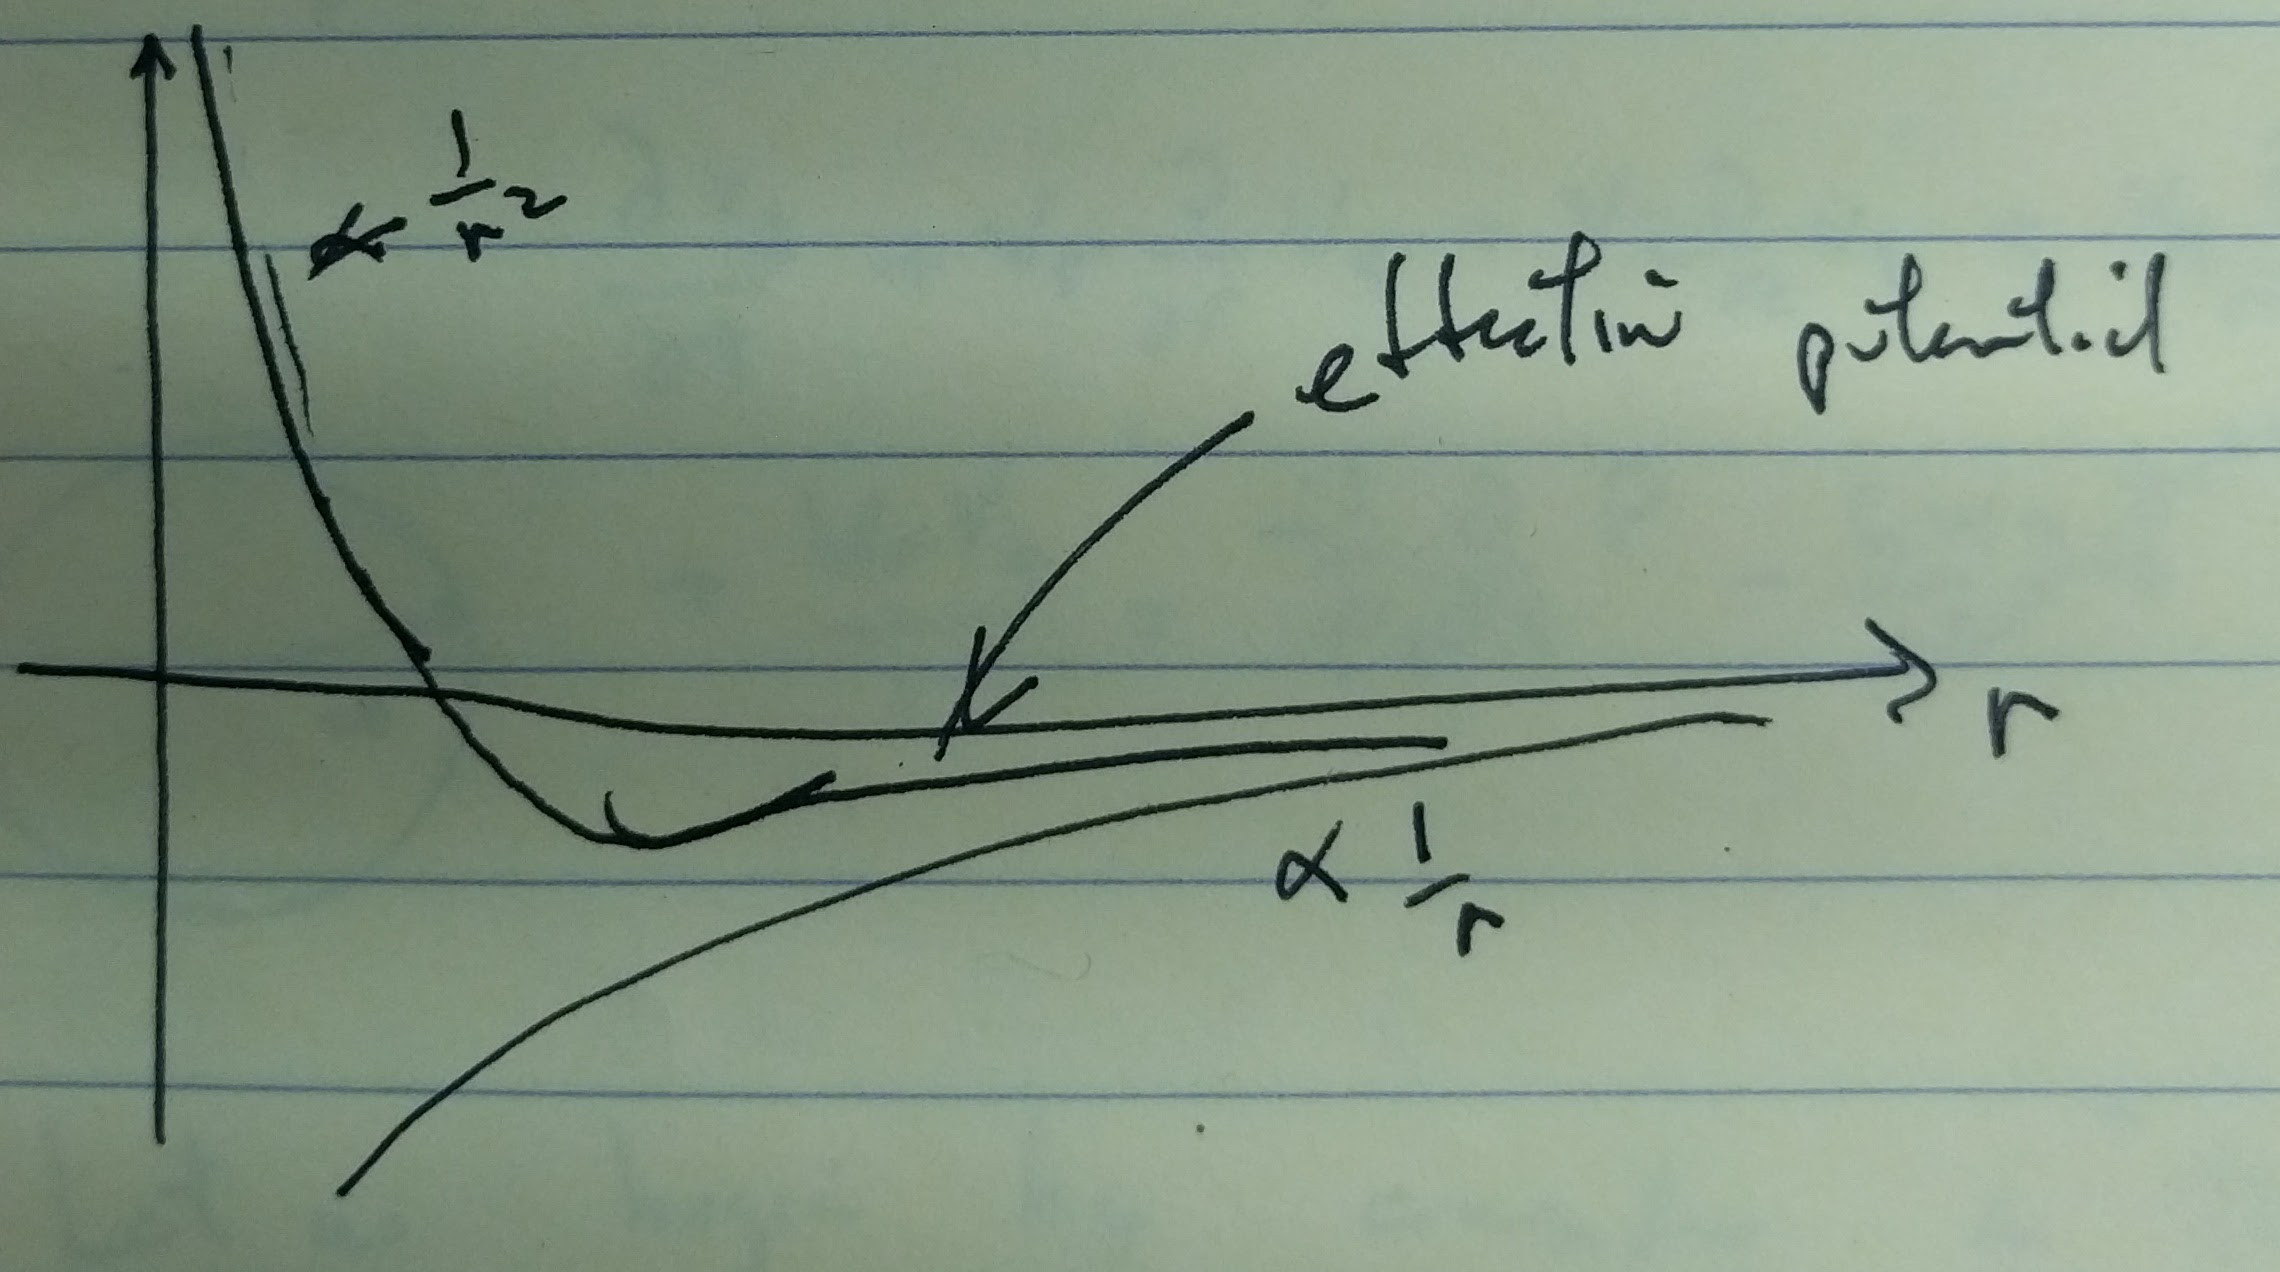 ∝ 1/r²
effective potential
r
∝ 1/r